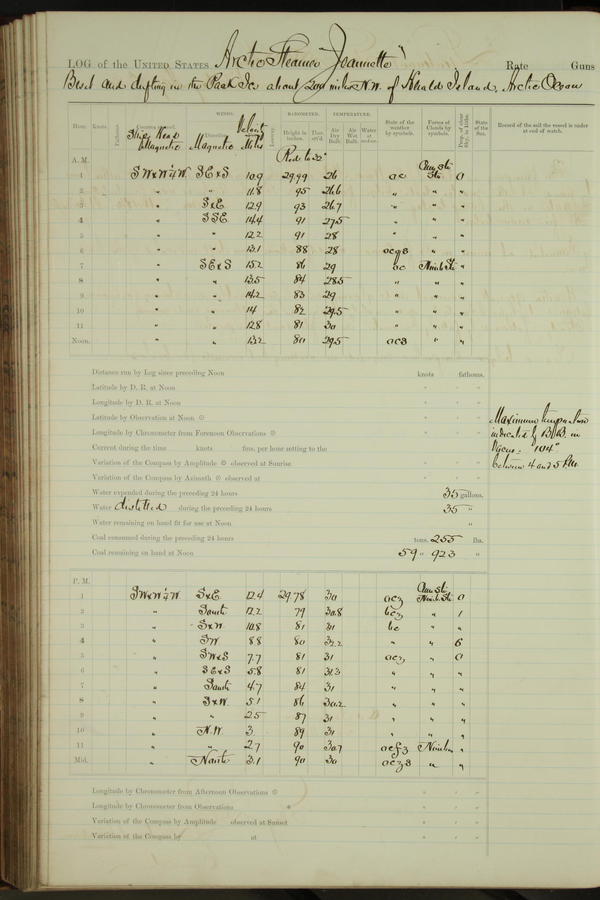 LOG of the UNITED STATES Arctic Steamer "Jeannette" Rate Guns
Beset and drifting in the Pack Ice about 200 miles N.W. of Herald Island, Arctic Ocean
Hour. Knots. Fathoms. Ship's Head Magnetic WINDS. Direction Magnetic Velocity Miles Leeway. BAROMETER. Height in inches. Ther. att'd. TEMPERATURE. Air Dry Bulb. Air Wet Bulb. Water at surface. State of the weather by symbols. Forms of Clouds by symbols. Prop. of clear Sky, in 10ths. State of the Sea. Record of the sail the vessel is under at end of watch.
A. M. Red. to 32°
1 SWxW¼W SExS 10.9 29.99 26 oc Cum. Str. 0
2 " " 11.8 95 26.6 " " "
3 " SxE 12.9 93 26.7 " " "
4 " SSE 14.4 91 27.5 " " "
5 " " 12.2 91 28 " " "
6 " " 13.1 88 28 " "
7 " SExS 15.2 86 29 oc "
8 " " 13.5 84 28.5 " " "
9 " " 14.2 83 29 " " "
10 " " 14 82 29.5 " " "
11 " " 12.8 81 30 " " "
Noon. " " 13.2 80 29.5 ocs " "
Distance run by Log since preceding Noon knots fathoms.
Latitude by D. R. at Noon " " "
Longitude by D. R. at Noon " " "
Latitude by Observation at Noon ☉ " " "
Longitude by Chronometer from Forenoon Observations ☉ " " "
Current during the time knots fms. per hour setting to the
Variation of the Compass by Amplitude ☉ observed at Sunrise " " "
Variation of the Compass by Azimuth ☉ observed at " " "
Maximum temperature
indicated by B.B. in
Vacuo: "104°"
between 4 and 5 P.M.
Water expended during the preceding 24 hours 35 gallons.
Water distilled during the preceding 24 hours 35 "
Water remaining on hand fit for use at Noon "
Coal consumed during the preceding 24 hours tons. 255 lbs.
Coal remaining on hand at Noon 59 " 923 "
P. M.
1 SWxW¼W SxE 12.4 29.78 30 ocz 0
2 " South 12.2 79 30.8 bcz " 1
3 " SxW 10.8 81 31 bc " "
4 " SW 8.8 80 32.2 " " 6
5 " SWxS 7.7 81 31 ocz " 0
6 " SExS 5.8 81 31.3 " " "
7 " South 4.7 84 31 " " "
8 " SxW 5.1 86 30.2 " " "
9 " " 2.5 87 31 " " "
10 " N.W. 3 89 31 " " "
11 " " 2.7 90 30.7 ocfz "
Mid. " North 3.1 90 30 oczs " "
Longitude by Chronometer from Afternoon Observations ☉ " " "
Longitude by Chronometer from Observations * " " "
Variation of the Compass by Amplitude observed at Sunset " " "
Variation of the Compass by at " " "